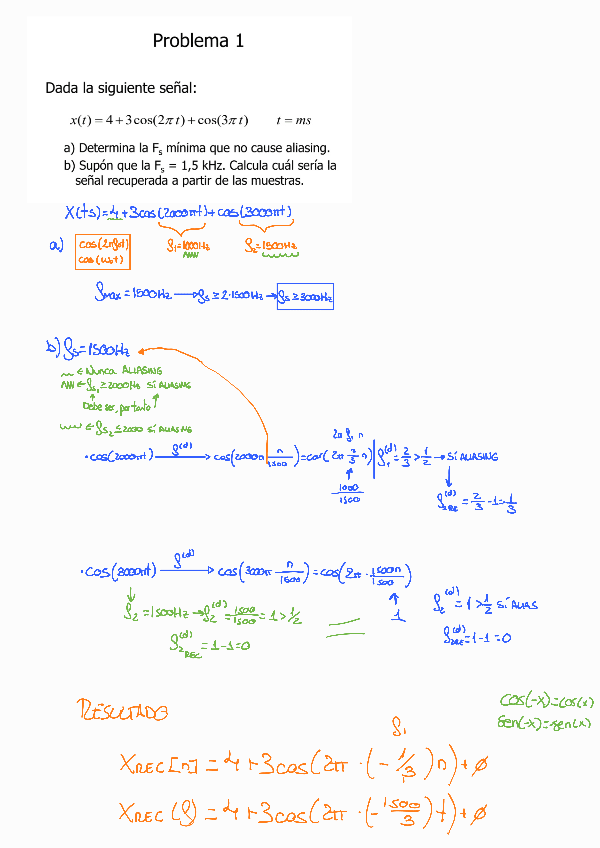 Problema 1
Dada la siguiente señal:
x(t) = 4 + 3cos(2π t) + cos(3π t) t = ms
a) Determina la Fs mínima que no cause aliasing.
b) Supón que la Fs = 1,5 kHz. Calcula cuál sería la
señal recuperada a partir de las muestras.
X(ts)=4+3cos(2000πt)+cos(3000πt)
a) cos(2πf0t) f1=1000Hz f2=1500Hz
cos(ω0t)
fmax=1500Hz → fs ≥ 2·1500Hz → fs ≥ 3000Hz
b) fs=1500Hz
← Nunca ALIASING
← fs1 ≥ 2000Hz SÍ ALIASING
Debe ser, por tanto
← fs2 ≤ 2000 SÍ ALIASING
2π f1 n
·cos(2000πt) f(d) → cos(2000π n/1500) = cos(2π 2/3 n) | f1(d) = 2/3 > 1/2 → SÍ ALIASING
1000/1500
f2REC(d) = 2/3 - 1 = -1/3
·cos(3000πt) f(d) → cos(3000π · n/1500) = cos(2π · 1500n/1500)
f2=1500Hz → f2(d) = 1500/1500 = 1 > 1/2
1
f2(d) = 1 > 1/2 SÍ ALIAS
f2REC(d) = 1-1=0
f2REC(d) = 1-1=0
RESULTADO
cos(-x)=cos(x)
sen(-x)=-sen(x)
f1
XREC[n] = 4+3cos(2π·(-1/3)n)+ø
XREC(f) = 4+3cos(2π·(-1500/3)t)+ø